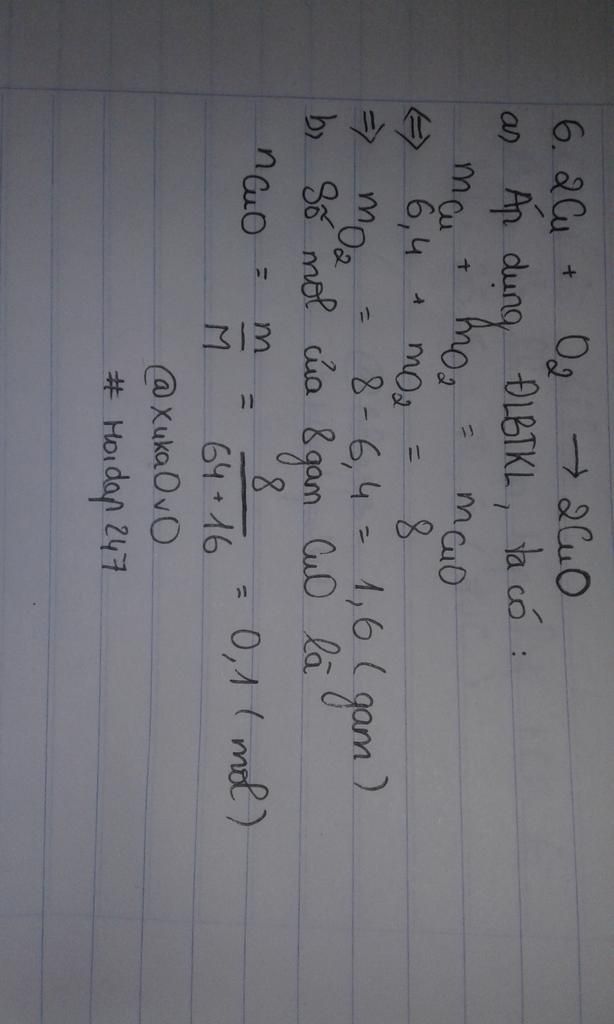 6. 2Cu + O2 → 2CuO
a, Áp dụng ĐLBTKL, ta có:
mCu + mO2 = mCuO
⇔ 6,4 + mO2 = 8
⇒ mO2 = 8 - 6,4 = 1,6 (gam)
b, Số mol của 8gam CuO là
nCuO = m/M = 8/64+16 = 0,1 (mol)
@xukaOvO
# Hoidap247